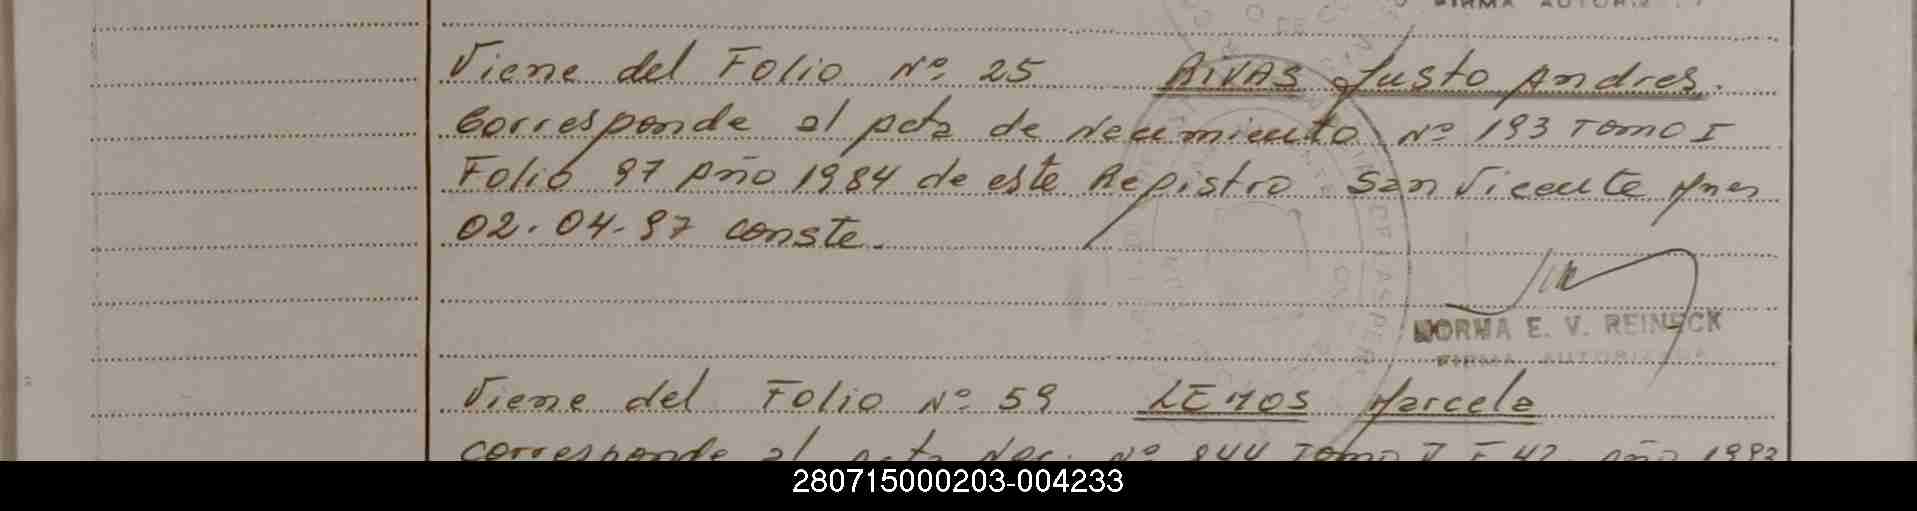 FIRMA AUTORIZ
Viene del Folio Nº 25 RIVAS Justo Andres.
Corresponde al acta de Nacimiento Nº 193 Tomo I
Folio 97 Año 1984 de este Registro San Vicente Mnes
02.04.97 conste.
NORMA E. V. REINECK
FIRMA AUTORIZADA
Viene del Folio Nº 59 LEMOS Marcela
corresponde al acta Nac. Nº 844 Tomo I F 42. Año 1983
280715000203-004233